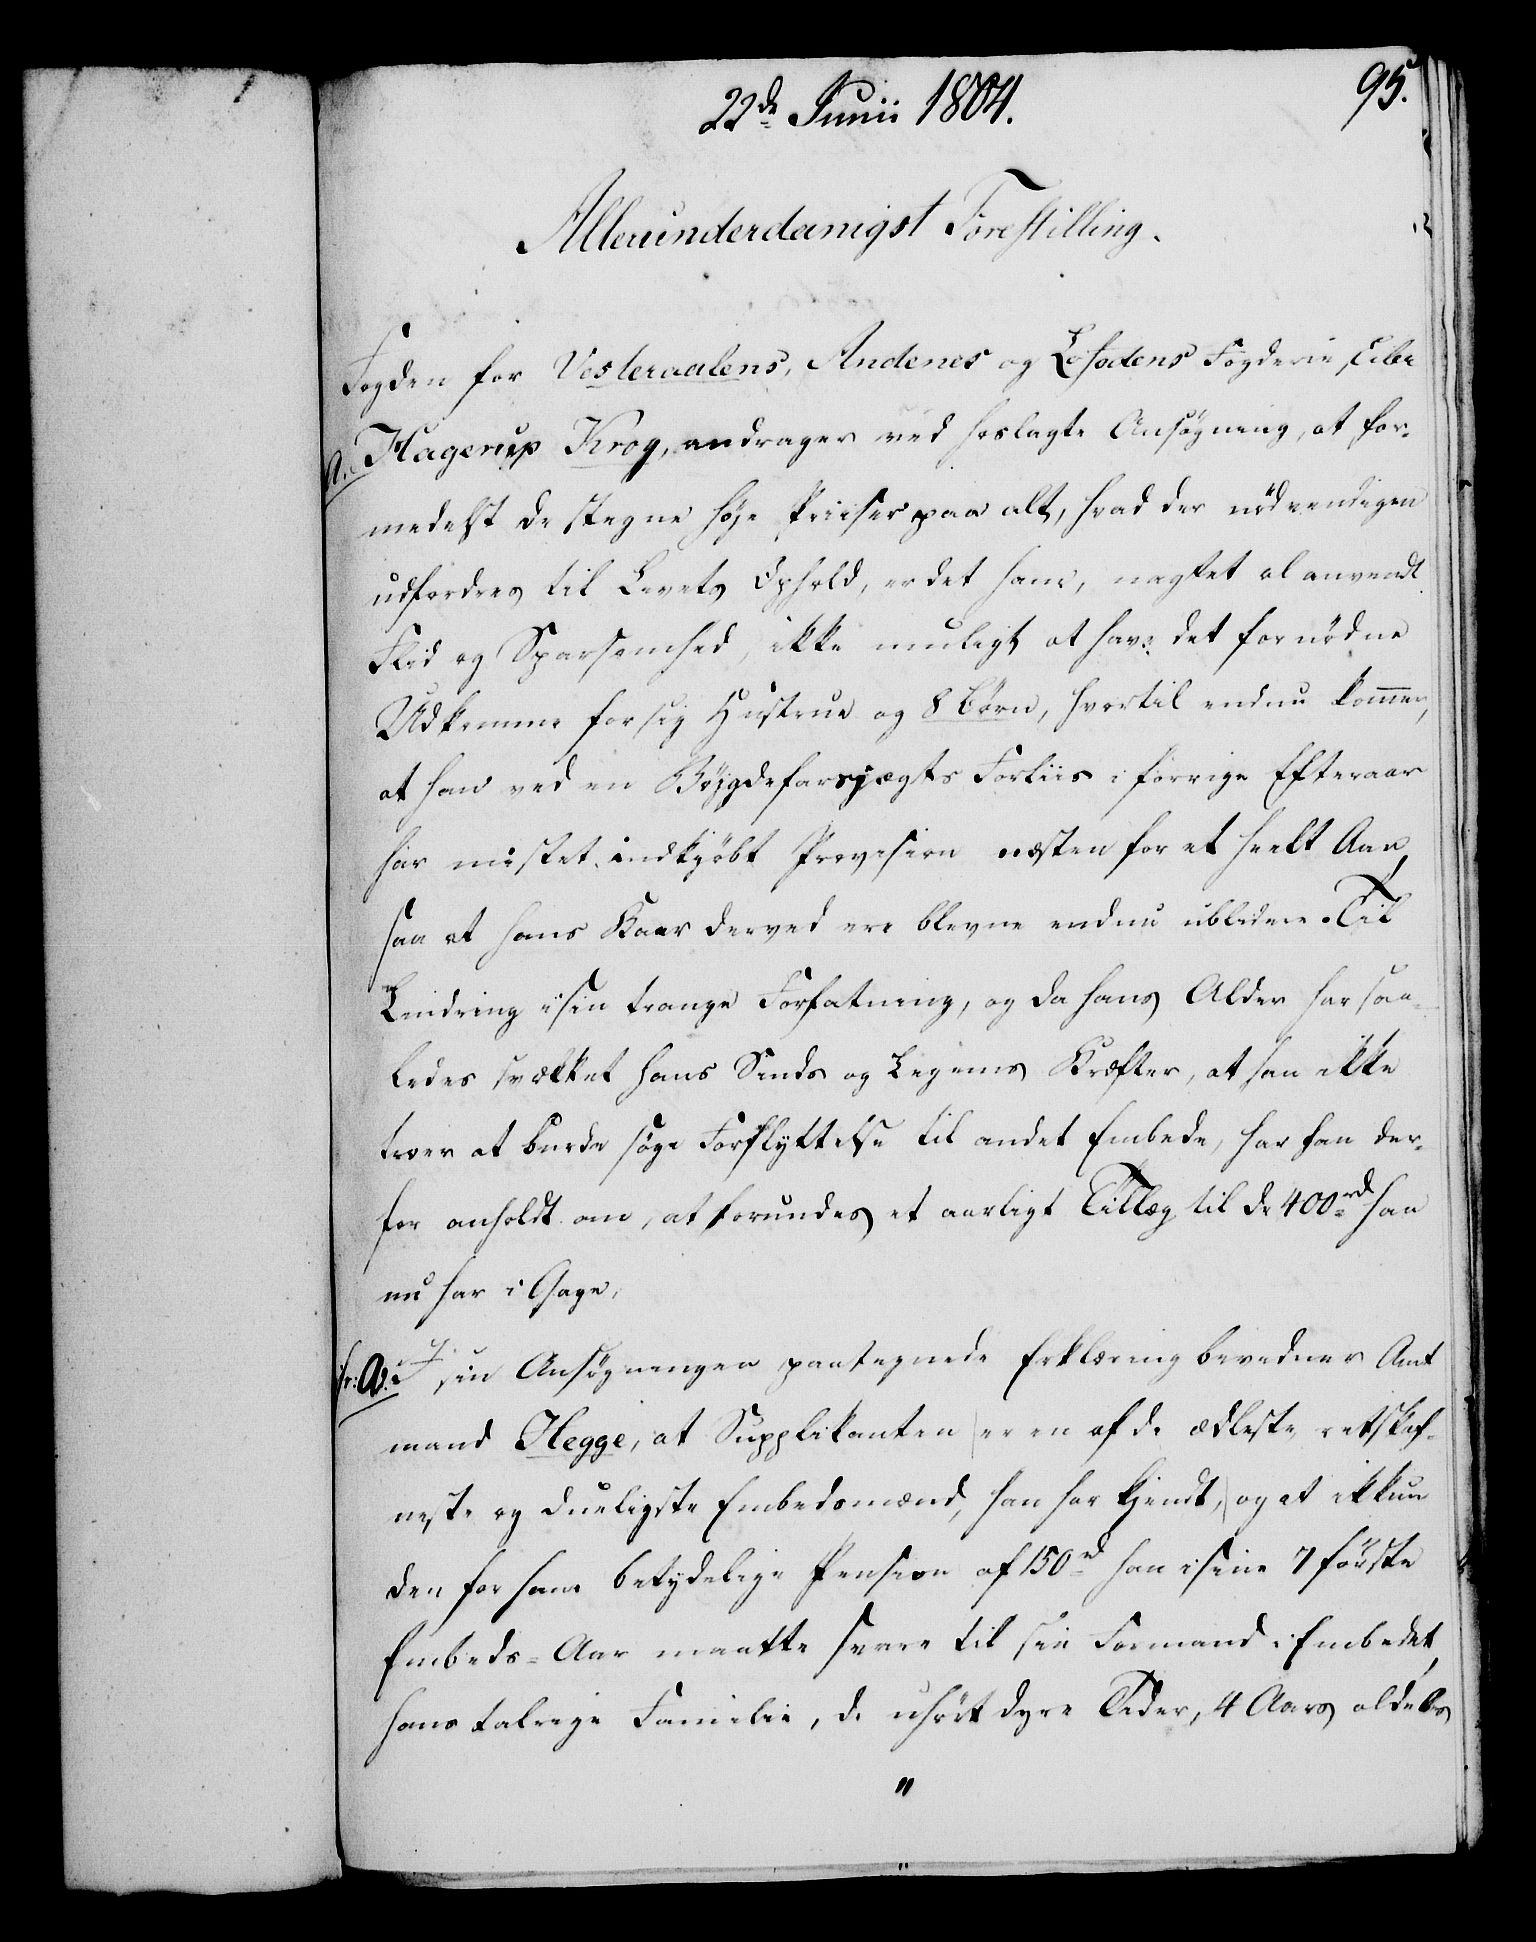 22de Junii 1804.
95.
Allerunderdanigst Forestilling.
Fogden for Vesteraalens, Andenes og Lofodens Fögderie, Eiler
A. Hagerup Krog, andrager ved heslagte Ansögning, at for-
medelst de stegne höje Priiser paa alt, hvad der nödvendigen
udfordres til Livets Ophold, er det ham, uagtet al anvendt
Flid og Sparsomhed, ikke muligt at have det fornödne
Udkomme for sig Hustrue og 8 börn, hvortil endnu kommer,
at han ved en Bygdefarsjægts Forliis i forrige Efteraar
har mistet indkjöbt Provision næsten for et heelt Aar,
saa at hans Kaar derved ere blevne endnu ublidere. Til
Lindring i sin trange Forfatning, og da hans Alder har saa-
ledes svækket hans Sinds og Legems Kræfter, at han ikke
troer at burde söge Forflyttelse til andet Embede, har han der-
for anholdt om, at forundes et aarligt Tillæg til de 400rd han
nu har i Gage.
fr: A. I sin Ansögningen paategnede Erklæring bevidner Amt
mand Hegge, at Supplikanten er en af de ædleste, retskaf-
neste og dueligste Embedsmænd, han har kjendt, og at ikkun
den for ham betydelige Pension af 150rd han i sine 7 förste
Embeds-Aar maatte svare til sin Formand i Embedet,
hans talrige Familie, de uhört dyre Tider, 4 Aars aldeles
"